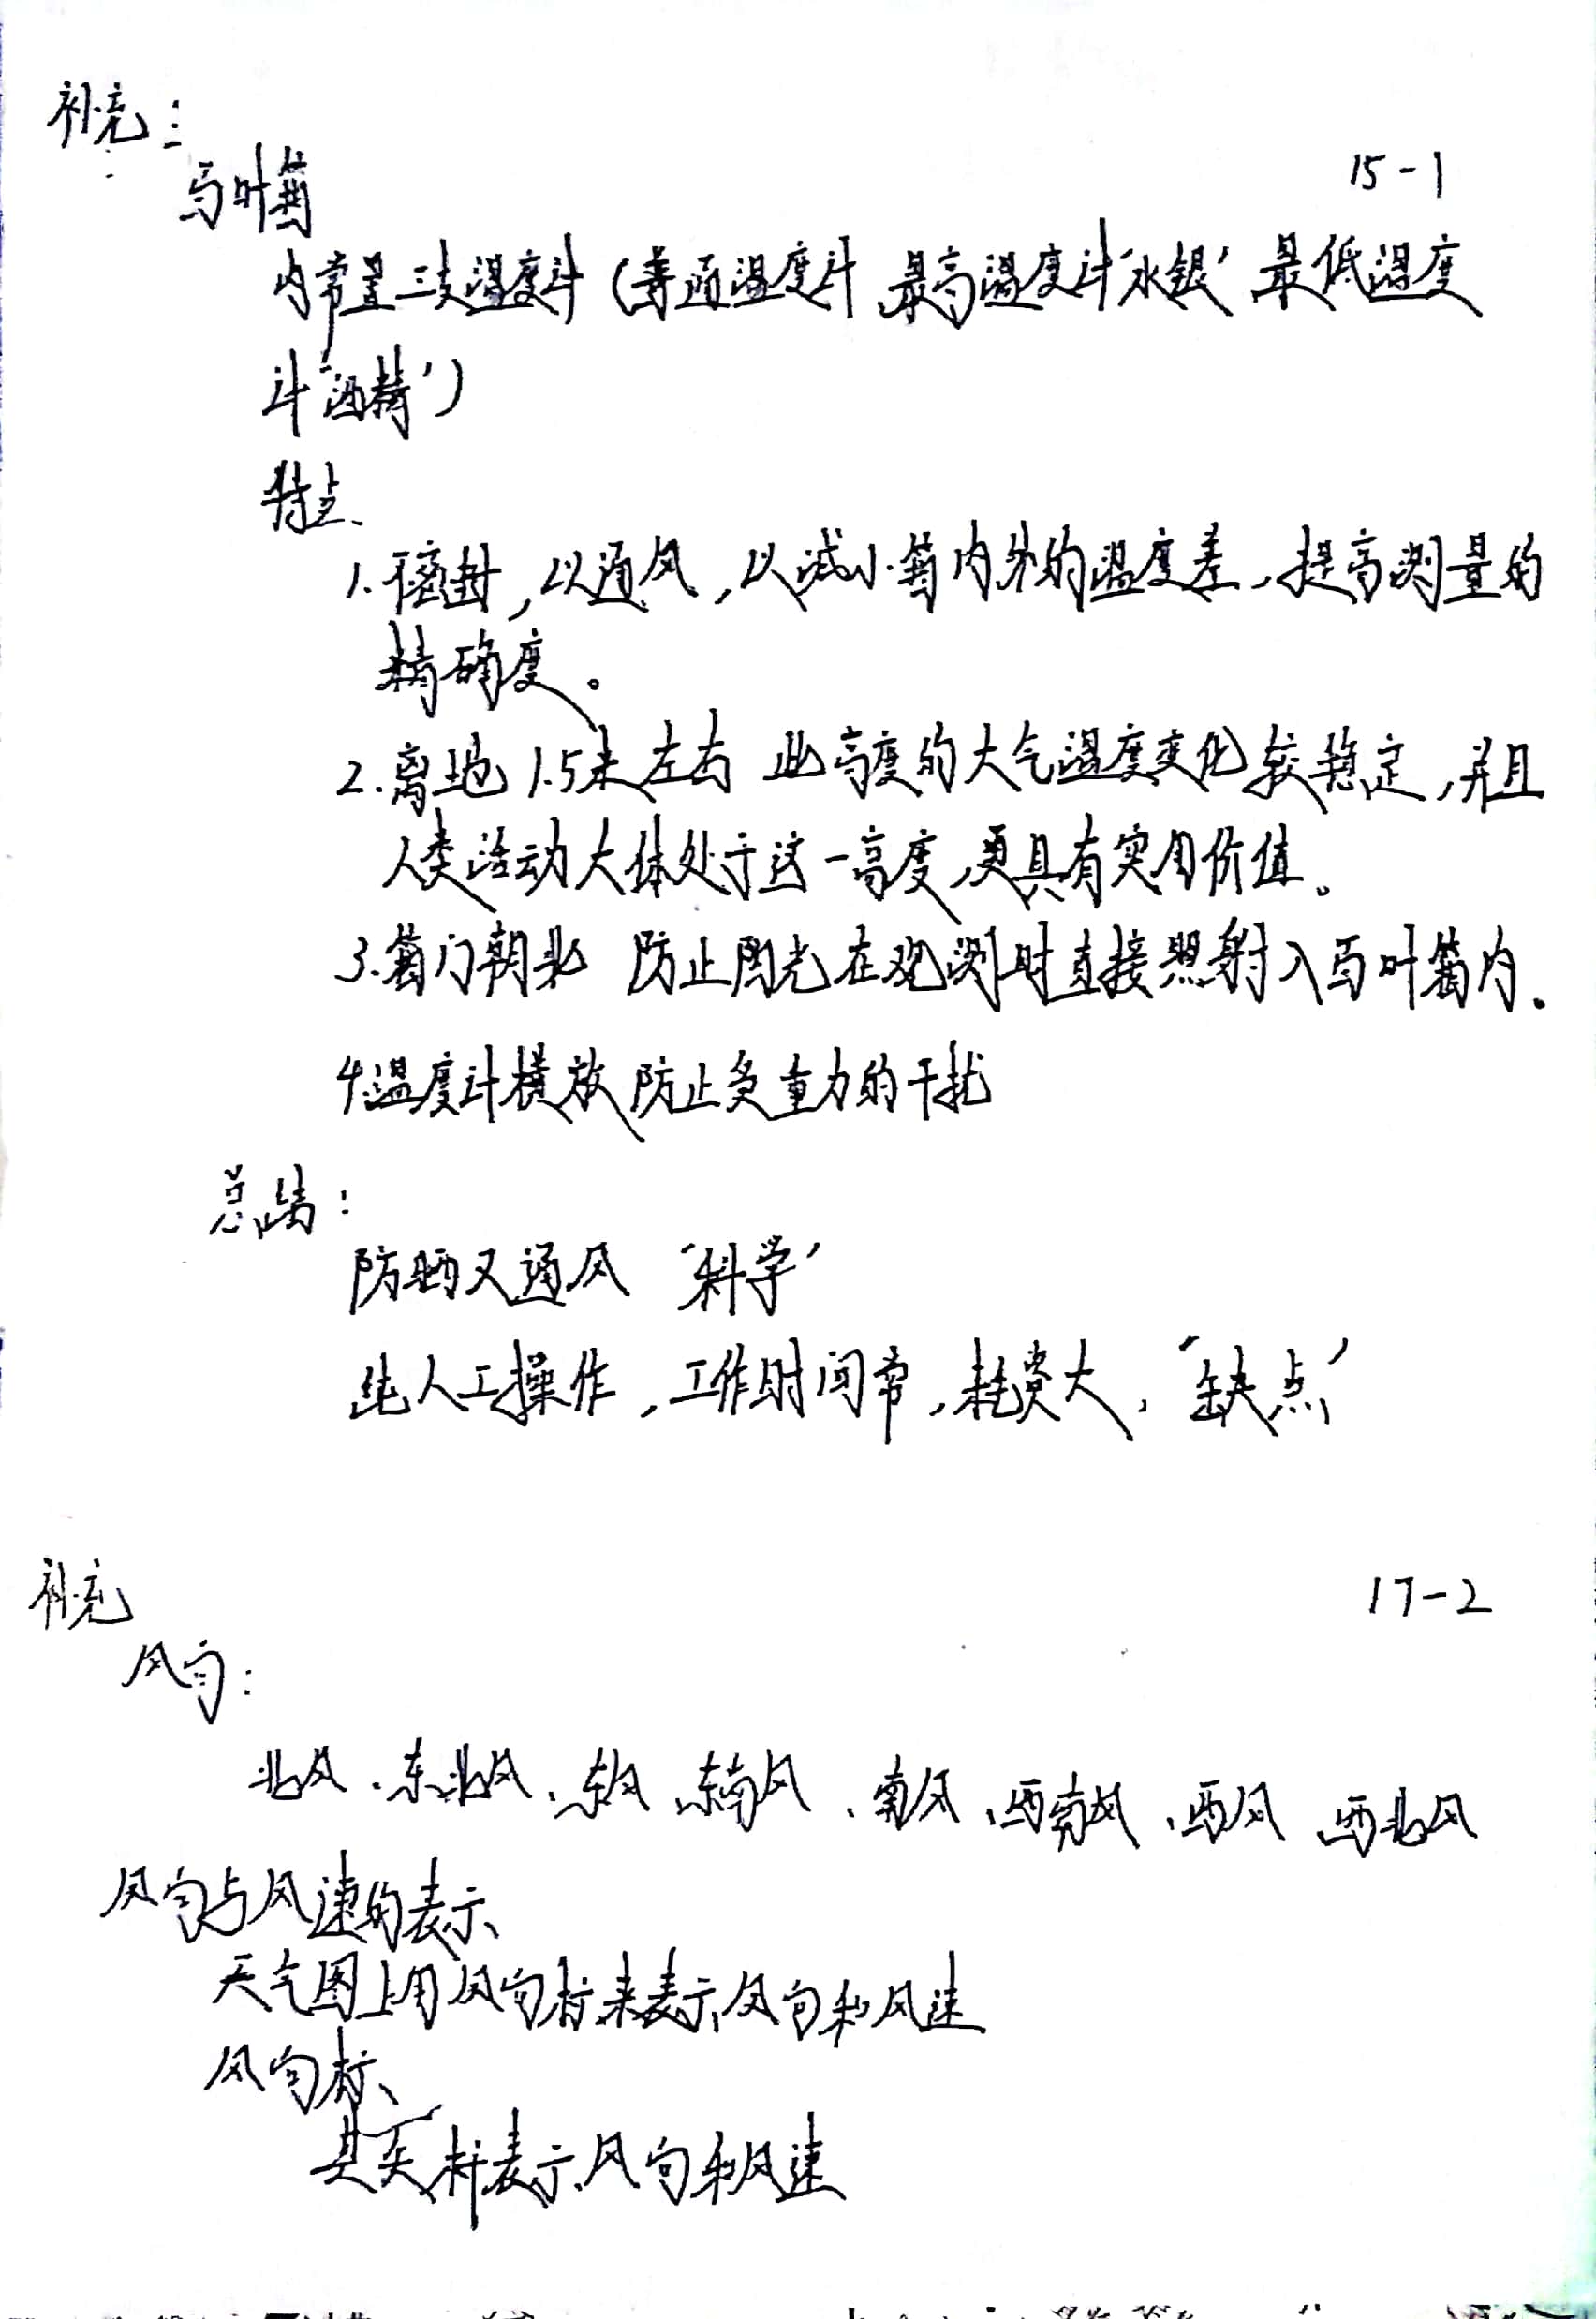 补充：
15-1
百叶箱
内常置三支温度计（普通温度计 最高温度计‘水银’ 最低温度
计‘酒精’）
特点、
1.不密封，以通风，以减小箱内外的温度差，提高测量的
精确度。
2.离地1.5米左右 此高度的大气温度变化较稳定，并且
人类活动大体处于这一高度，更具有实用价值。
3.箱门朝北 防止阳光在观测时直接照射入百叶箱内。
4.温度计横放 防止受重力的干扰
总结：
防晒又通风 ‘科学’
纯人工操作，工作时间常，耗费大，‘缺点’
补充
17-2
风向：
北风、东北风、东风、东南风、南风、西南风、西风 西北风
风向与风速的表示
天气图上用风向标来表示风向和风速
风向标、
其矢杆表示风向和风速